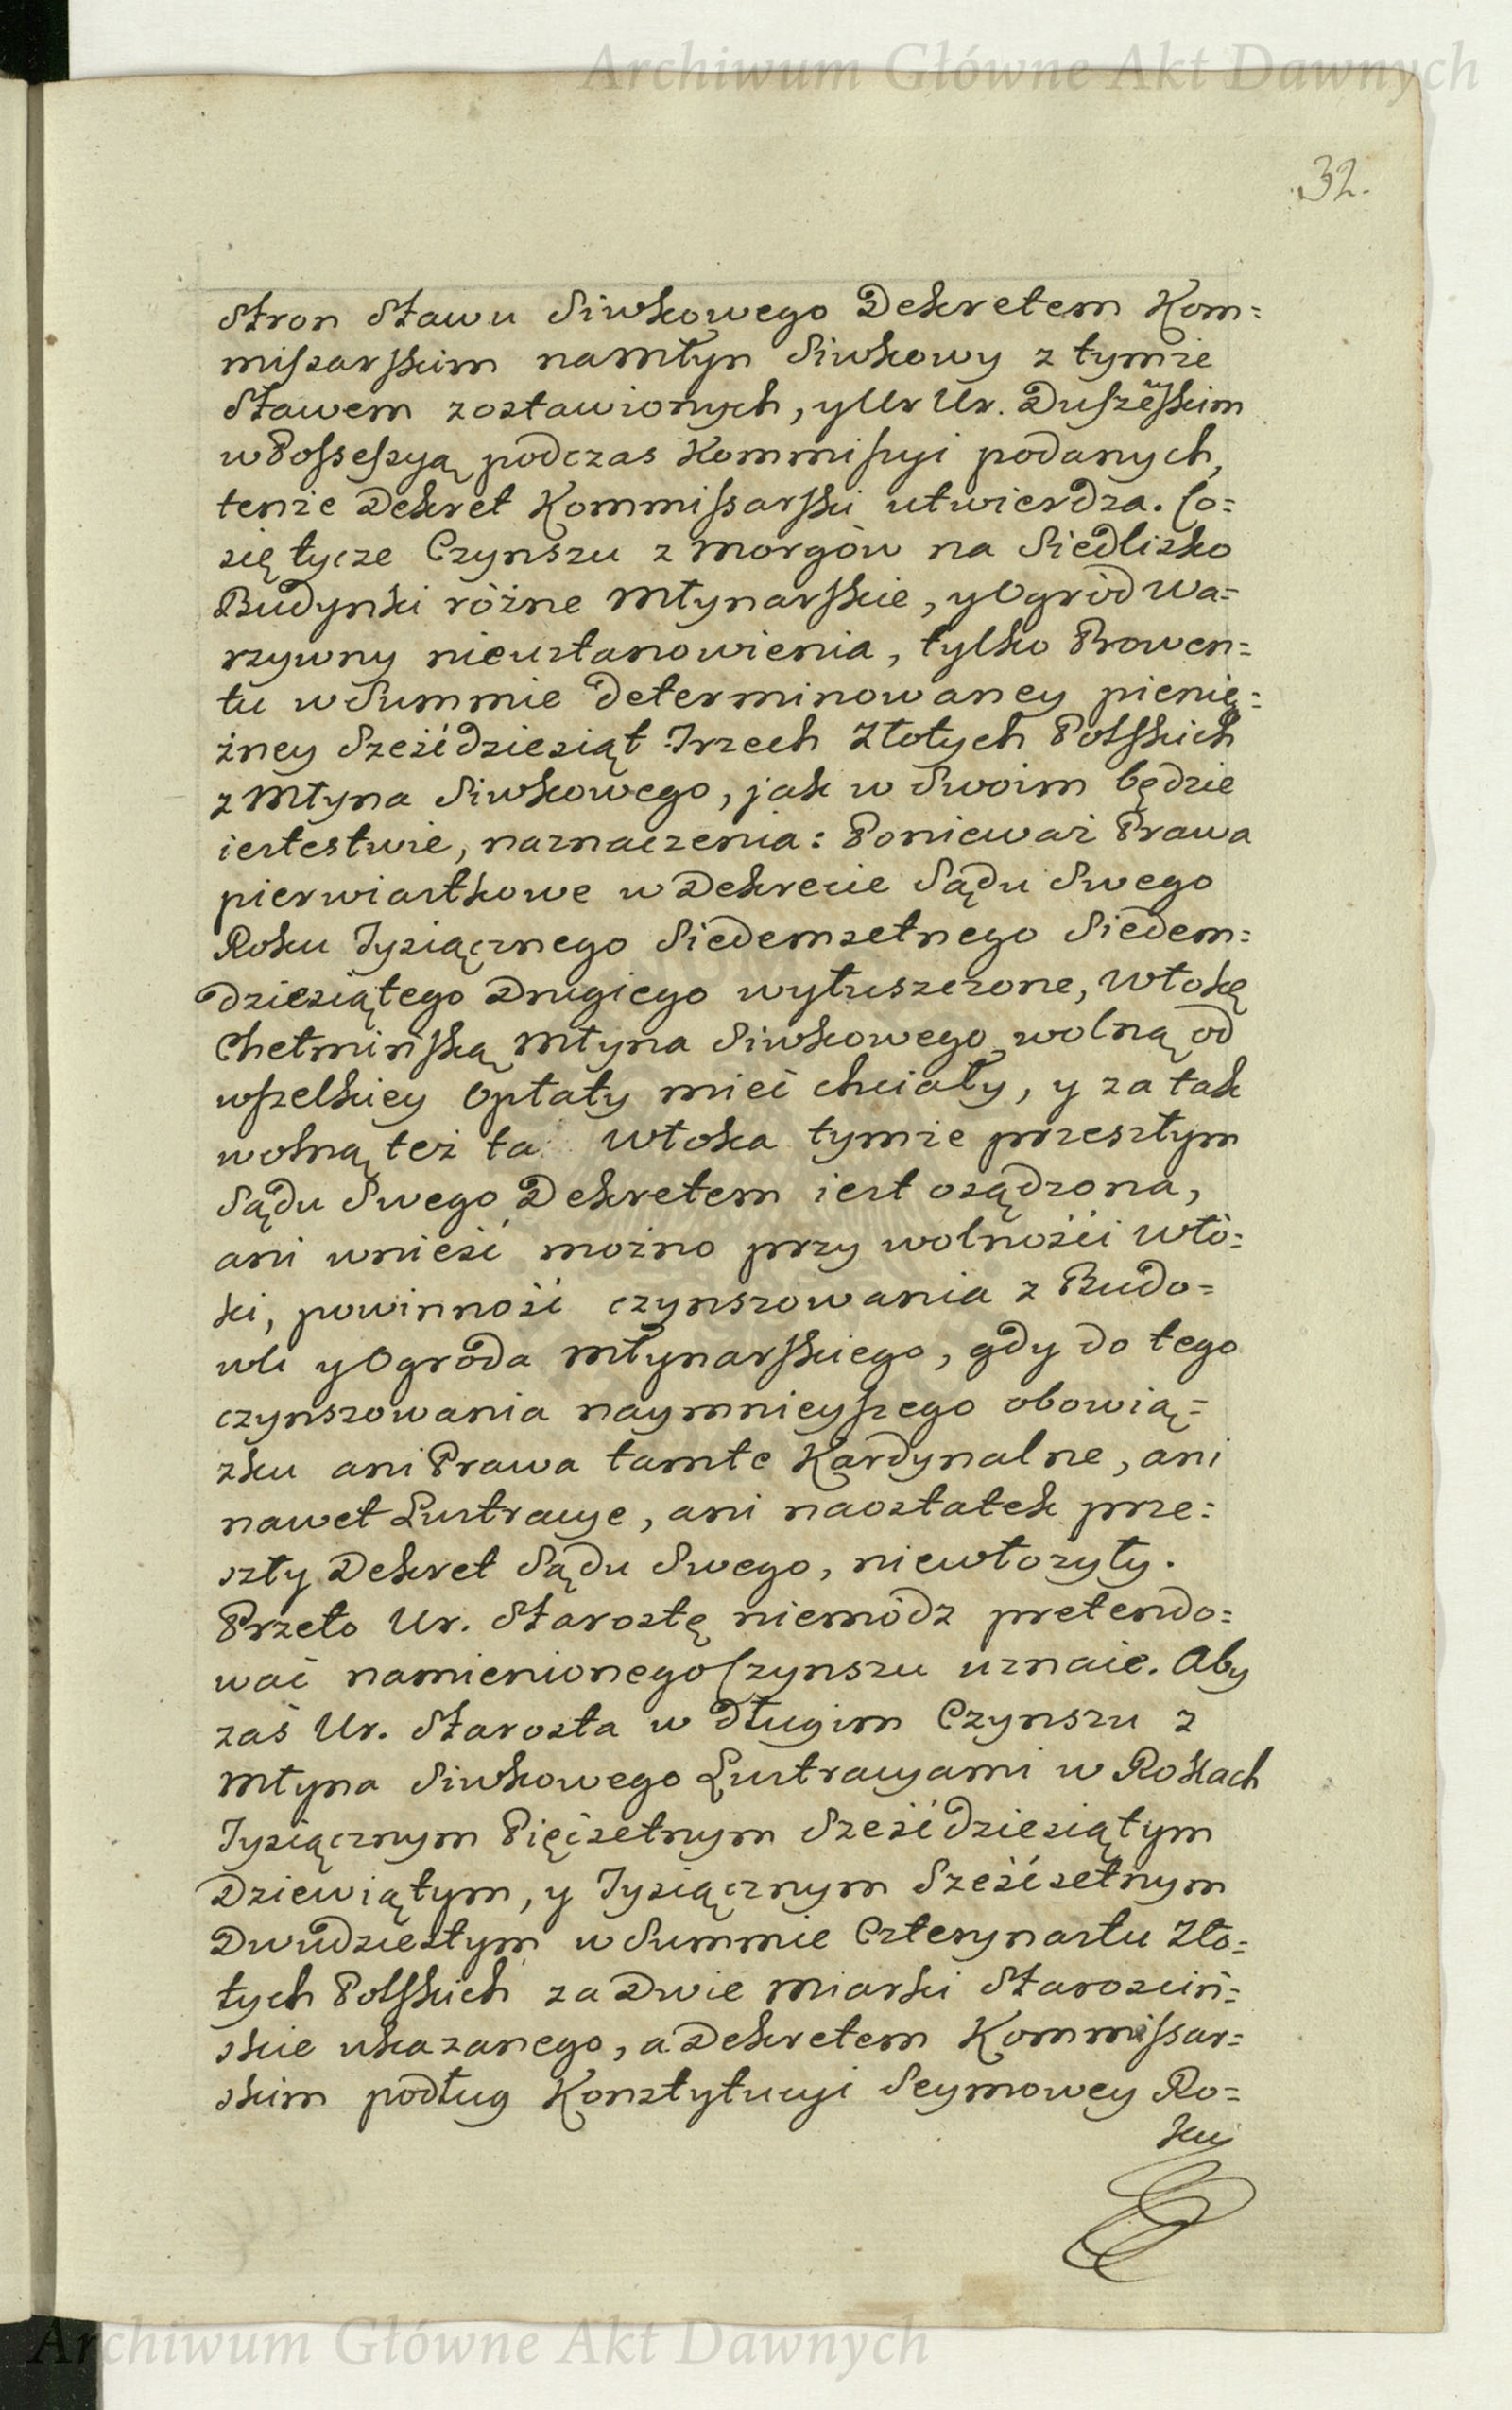 Archiwum Główne Akt Dawnych
32.
Stron Stawu Siwkowego Dekretem Kom=
missarskim na Młyn Siwkowy z tymże
Stawem zostawionych, y Ur Ur. Duszeńskim
w Possessyą podczas Kommissyi podanych,
tenże Dekret Kommissarski utwierdza. Co=
się tycze Czynszu z morgów na Siedlisko
Budynki różne Młynarskie, y Ogród Wa=
rzywny nieustanowienia, tylko Prowen=
tu w Summie determinowaney pienię=
żney Sześćdziesiąt Trzech Złotych Polskich
z Młyna Siwkowego, jak w Swoim będzie
iestestwie, naznaczenia: Ponieważ Prawa
pierwiastkowe w Dekrecie Sądu Swego
Roku Tysiącznego Siedemsetnego Siedem=
dziesiątego Drugiego wyłuszczone, Włokę
Chełmińską Młyna Siwkowego wolną od
wszelkiey Opłaty mieć chciały, y za tak
wolną też ta Włoka tymże przeszłym
Sądu Swego Dekretem iest osądzona,
ani wnieść można przy wolności Wło=
ki, powinność czynszowania z Budo=
wli y Ogroda Młynarskiego, gdy do tego
czynszowania naymnieyszego obowią=
zku ani Prawa tamte Kardynalne, ani
nawet Lustracye, ani naostatek prze=
szły Dekret Sądu Swego, niewłożyły.
Przeto Ur. Starostę niemódz pretendo=
wać namienionego Czynszu uznaie. Aby
zaś Ur. Starosta w długim Czynszu z
Młyna Siwkowego Lustracyami w Rokach
Tysiącznym Pięćsetnym Sześćdziesiątym
Dziewiątym, y Tysiącznym Sześćsetnym
Dwudziestym w Summie Czterynastu Zło=
tych Polskich za Dwie Miarki Starościń=
skie ukazanego, a Dekretem Kommissar=
skim podług Konstytucyi Seymowey Ro=
ku
Archiwum Główne Akt Dawnych